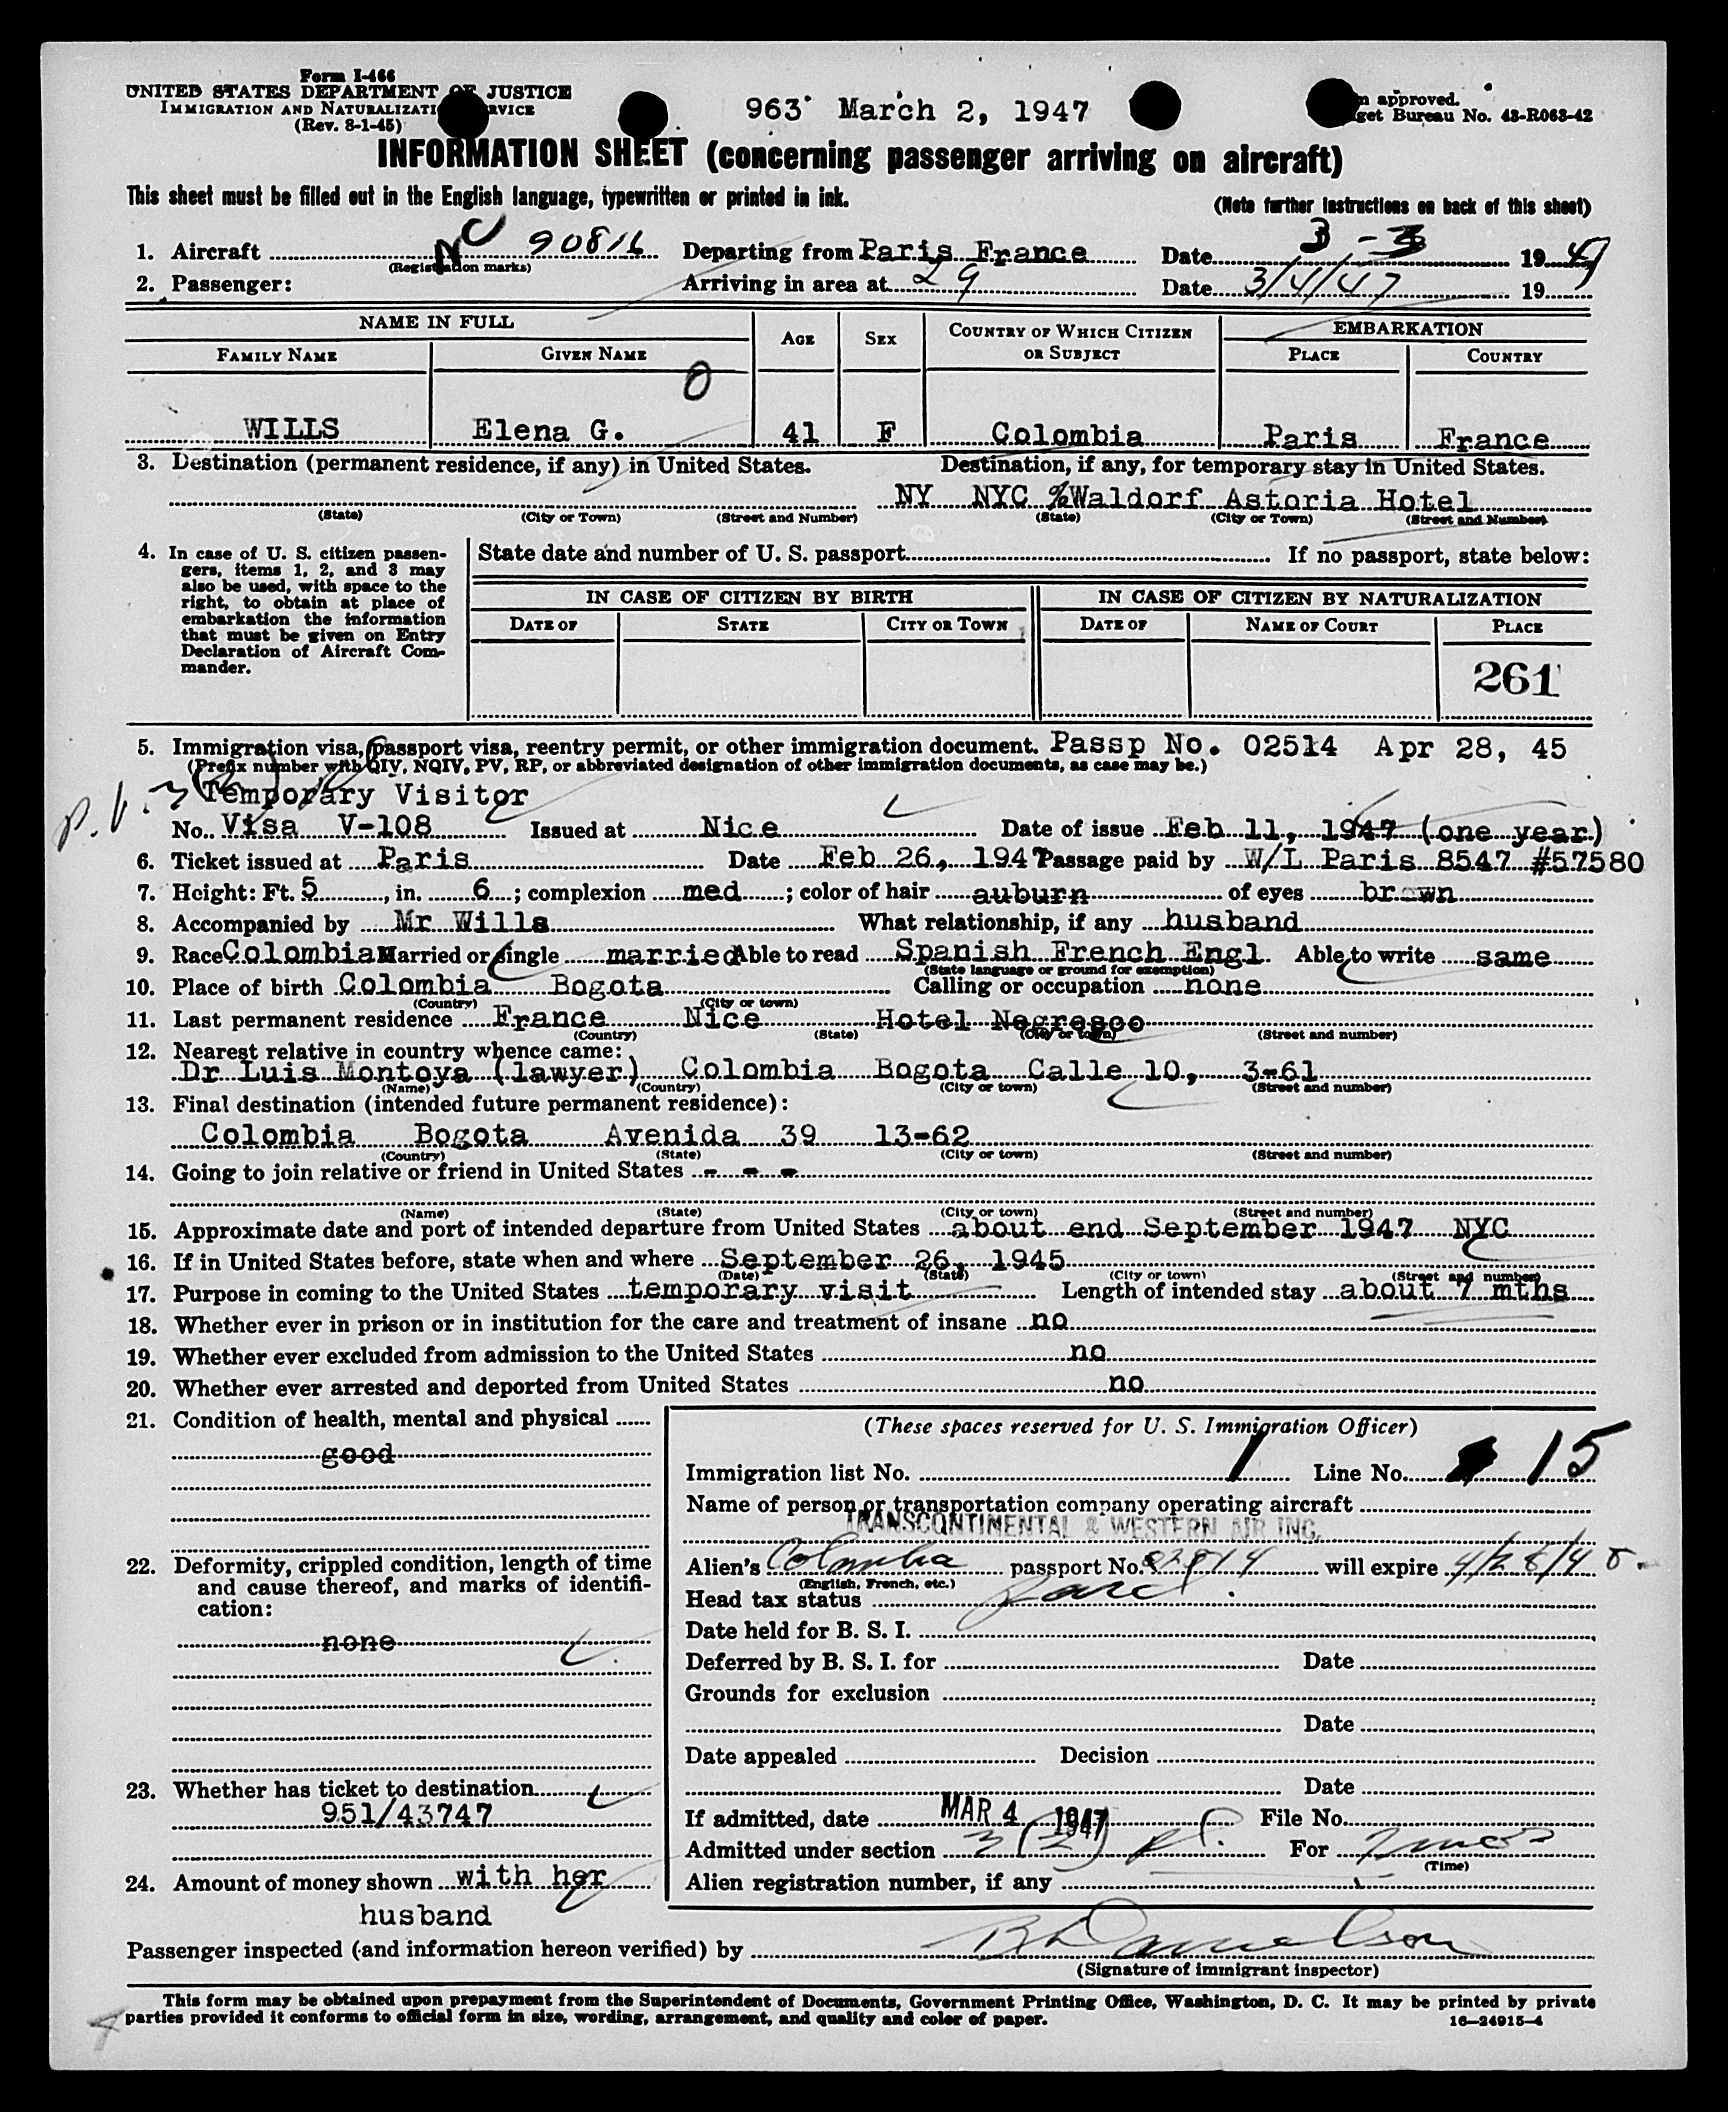 Form I-466
UNITED STATES DEPARTMENT OF JUSTICE
IMMIGRATION AND NATURALIZATI RVICE
(Rev. 8-1-45)
963 March 2, 1947
n approved.
get Bureau No. 43-R063-42
INFORMATION SHEET (concerning passenger arriving on aircraft)
This sheet must be filled out in the English language, typewritten or printed in ink.
(Note further instructions on back of this sheet)
1. Aircraft NC 90816 Departing from Paris France Date 3-3 1947
(Registration marks)
2. Passenger: Arriving in area at 29 Date 3/4/47 19
NAME IN FULL AGE SEX COUNTRY OF WHICH CITIZEN OR SUBJECT EMBARKATION
FAMILY NAME GIVEN NAME PLACE COUNTRY
0
WILLS Elena G. 41 F Colombia Paris France
3. Destination (permanent residence, if any) in United States. Destination, if any, for temporary stay in United States.
NY NYC % Waldorf Astoria Hotel
(State) (City or Town) (Street and Number) (State) (City or Town) (Street and Number)
4. In case of U. S. citizen passen-
gers, items 1, 2, and 3 may
also be used, with space to the
right, to obtain at place of
embarkation the information
that must be given on Entry
Declaration of Aircraft Com-
mander.
State date and number of U. S. passport If no passport, state below:
IN CASE OF CITIZEN BY BIRTH IN CASE OF CITIZEN BY NATURALIZATION
DATE OF STATE CITY OR TOWN DATE OF NAME OF COURT PLACE
261
5. Immigration visa, passport visa, reentry permit, or other immigration document. Passp No. 02514 Apr 28, 45
(Prefix number with QIV, NQIV, PV, RP, or abbreviated designation of other immigration documents, as case may be.)
Temporary Visitor
No. Visa V-108 Issued at Nice Date of issue Feb 11, 1947 (one year)
6. Ticket issued at Paris Date Feb 26, 194 Passage paid by W/L Paris 8547 #57580
7. Height: Ft. 5, in. 6; complexion med; color of hair auburn of eyes brown
8. Accompanied by Mr Wills What relationship, if any husband
9. Race Colombian Married or single married Able to read Spanish French Engl. Able to write same
(State language or ground for exemption)
10. Place of birth Colombia Bogota Calling or occupation none
(Country) (City or town)
11. Last permanent residence France Nice Hotel Negresco
(Country) (State) (City or town) (Street and number)
12. Nearest relative in country whence came:
Dr Luis Montoya (lawyer) Colombia Bogota Calle 10, 3-61
(Name) (Country) (City or town) (Street and number)
13. Final destination (intended future permanent residence):
Colombia Bogota Avenida 39 13-62
(Country) (State) (City or town) (Street and number)
14. Going to join relative or friend in United States - - -
(Name) (State) (City or town) (Street and number)
15. Approximate date and port of intended departure from United States about end September 1947 NYC
16. If in United States before, state when and where September 26, 1945
(Date) (State) (City or town) (Street and number)
17. Purpose in coming to the United States temporary visit Length of intended stay about 7 mths
18. Whether ever in prison or in institution for the care and treatment of insane no
19. Whether ever excluded from admission to the United States no
20. Whether ever arrested and deported from United States no
21. Condition of health, mental and physical
good
22. Deformity, crippled condition, length of time
and cause thereof, and marks of identifi-
cation:
none
23. Whether has ticket to destination
951/43747
24. Amount of money shown with her
husband
(These spaces reserved for U. S. Immigration Officer)
Immigration list No. 1 Line No. 15
Name of person or transportation company operating aircraft
TRANSCONTINENTAL & WESTERN AIR INC.
Alien's Colombia passport No. 02514 will expire 4/28/48.
(English, French, etc.)
Head tax status
Date held for B. S. I.
Deferred by B. S. I. for Date
Grounds for exclusion
Date
Date appealed Decision
Date
If admitted, date MAR 4 1947 File No.
Admitted under section 3(2) For 7 mos
(Time)
Alien registration number, if any
Passenger inspected (and information hereon verified) by
(Signature of immigrant inspector)
This form may be obtained upon prepayment from the Superintendent of Documents, Government Printing Office, Washington, D. C. It may be printed by private
parties provided it conforms to official form in size, wording, arrangement, and quality and color of paper.
16—24915-4